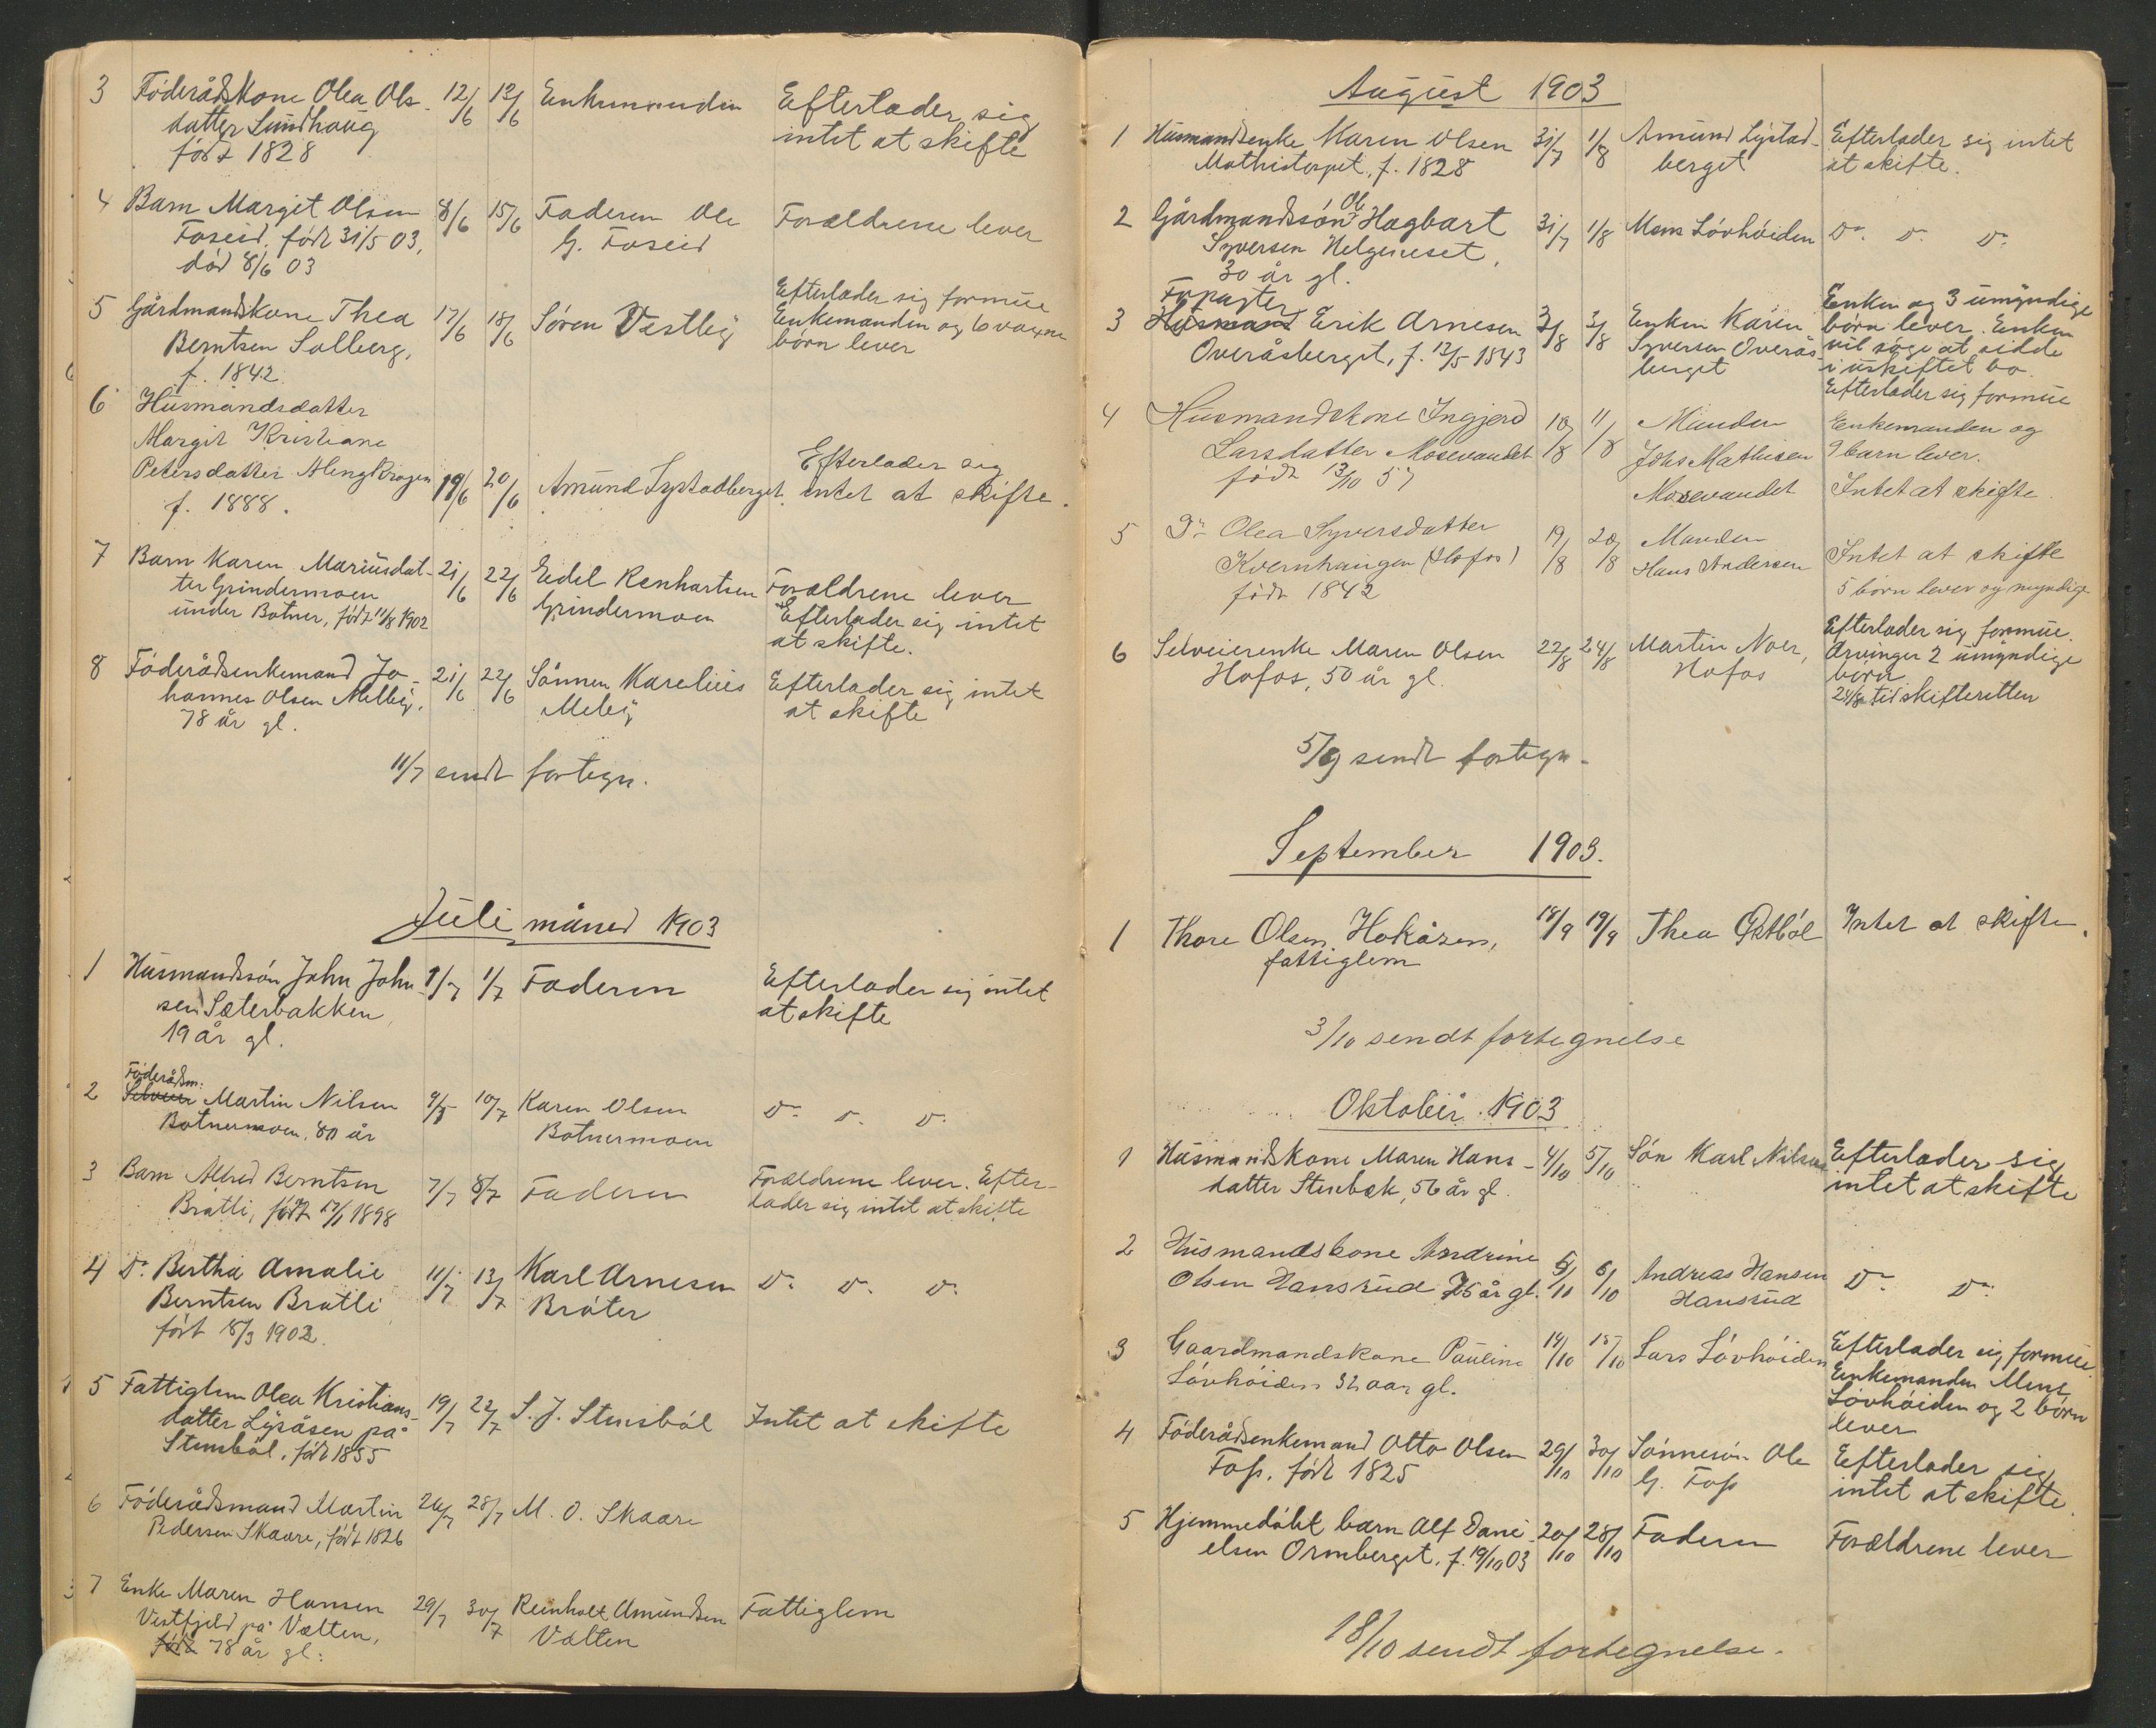 3 Föderådskone Olea Ols- 12/6 13/6 Enkemanden Efterlader sig
datter Lundhaug intet at skifte
født 1828
4 Barn Margit Olsen 8/6 15/6 Faderen Ole Forældrene lever
Foseid, født 31/5 03, G. Foseid
død 8/6 03
5 Gårdmandskone Thea 17/6 18/6 Søren Vestby Efterlader sig formue
Berntsen Solberg, Enkemanden og 6 voxne
f. 1842 børn lever
6 Husmandsdatter
Margit Kristiane
Petersdatter 19/6 20/6 Amund Lystadberget Efterlader sig
f. 1888. intet at skifte.
7 Barn Karen Mariusdat- 21/6 22/6 Edel Renhartsen Forældrene lever
ter Grindermoen Grindermoen Efterlader sig intet
under Botner, født 11/8 1902 at skifte.
8 Föderådsenkemand Jo- 21/6 22/6 Sønnen Karelius Efterlader sig intet
hannes Olsen Melby, Meby at skifte
78 år gl.
11/7 sendt fortegn.
Juli måned 1903
1 Husmandssøn John John- 1/7 1/7 Faderen Efterlader sig intet
sen Sæterbakken at skifte
19 år gl.
Föderådsm:
2 Selveier Martin Nilsen 9/7 10/7 Karen Olsen Do. Do. Do.
Botnermoen, 80 år Botnermoen
3 Barn Alfred Berntsen 7/7 8/7 Faderen Forældrene lever. Efter-
Bråtli, født 17/1 1898 lader sig intet at skifte
4 Do. Bertha Amalie 11/7 13/7 Karl Arnesen Do. Do. Do.
Berntsen Bratli Bråter
født 8/3 1902.
5 Fattiglem Olea Kristians- 19/7 22/7 S. J. Stensböl Intet at skifte
datter Lysåsen på
Stensböl, født 1855
6 Föderådsmand Martin 26/7 28/7 M. O. Skaare
Pedersen Skaare, født 1826
7 Enke Maren Hansen 29/7 30/7 Reinholt Amundsen Fattiglem
Vestfjeld på Vælten, Vælten
født 78 år gl:
August 1903
1 Husmandsenke Maren Olsen 31/7 1/8 Amund Lystad- Efterlader sig intet
Mathistorpet, f. 1828 berget at skifte.
2 Gårdmandssøn Ole Hagbart 31/7 1/8 Mons Lövhöiden Do. Do. Do.
Syversen Helgeneset,
30 år gl.
Forpagter
3 Husmand Erik Arnesen 3/8 3/8 Enken Karen Enken og 3 umyndige
Overåsberget, f. 12/5 1843 Syversen Overås- børn lever. Enken
berget vil søge at sidde
i uskiftet bo.
Efterlader sig formue
4 Husmandskone Ingjerd 10/8 11/8 Manden Enkemanden og
Larsdatter Mosevandet Johs Mathisen 9 barn lever.
født 13/10 57 Mosevandet Intet at skifte.
5 Do Olea Syversdatter 19/8 20/8 Manden Intet at skifte
Kvernhaugen (Hofos) Hans Andersen 5 børn lever og myndige
født 1842
6 Selveierenke Maren Olsen 22/8 24/8 Martin Noer, Efterlader sig formue.
Hofos, 50 år gl. Hofos Arvinger 2 umyndige
børn
24/8 til skifteretten
5/9 sendt fortegn-
September 1903.
1 Thore Olsen Hokåsen, 18/9 19/9 Thea Østböl Intet at skifte.
fattiglem
3/10 sendt fortegnelse
Oktober 1903
1 Husmandskone Maren Hans- 4/10 5/10 Sön Karl Nilsen Efterlader sig
datter Stenbæk, 56 år gl. intet at skifte
2 Husmandskone Andrine 5/10 6/10 Andreas Hansen Do. Do.
Olsen Hansrud 75 år gl. Hansrud
3 Gaardmandskone Pauline 14/10 15/10 Lars Lövhöiden Efterlader sig formue.
Lövhöiden 32 aar gl. Enkemanden Mens
Lövhöiden og 2 børn
lever
4 Föderådsenkemand Otto Olsen 29/10 30/10 Sönnesön Ole Efterlader sig
Foss, født 1825 G. Foss intet at skifte.
5 Hjemmedöbt barn Alf Dani- 20/10 28/10 Faderen Forældrene lever
elsen Ormberget, f. 19/10 03
18/10 sendt fortegnelse.